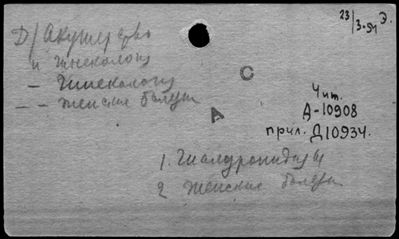 Д/Акушерство
и гинекология
— Гинекология
— — женские болезни
23/3-54 Э.
С
А
Чит.
А-10908
прил. Д10934.
1. Гиалуронидазы
2 Женские болезни